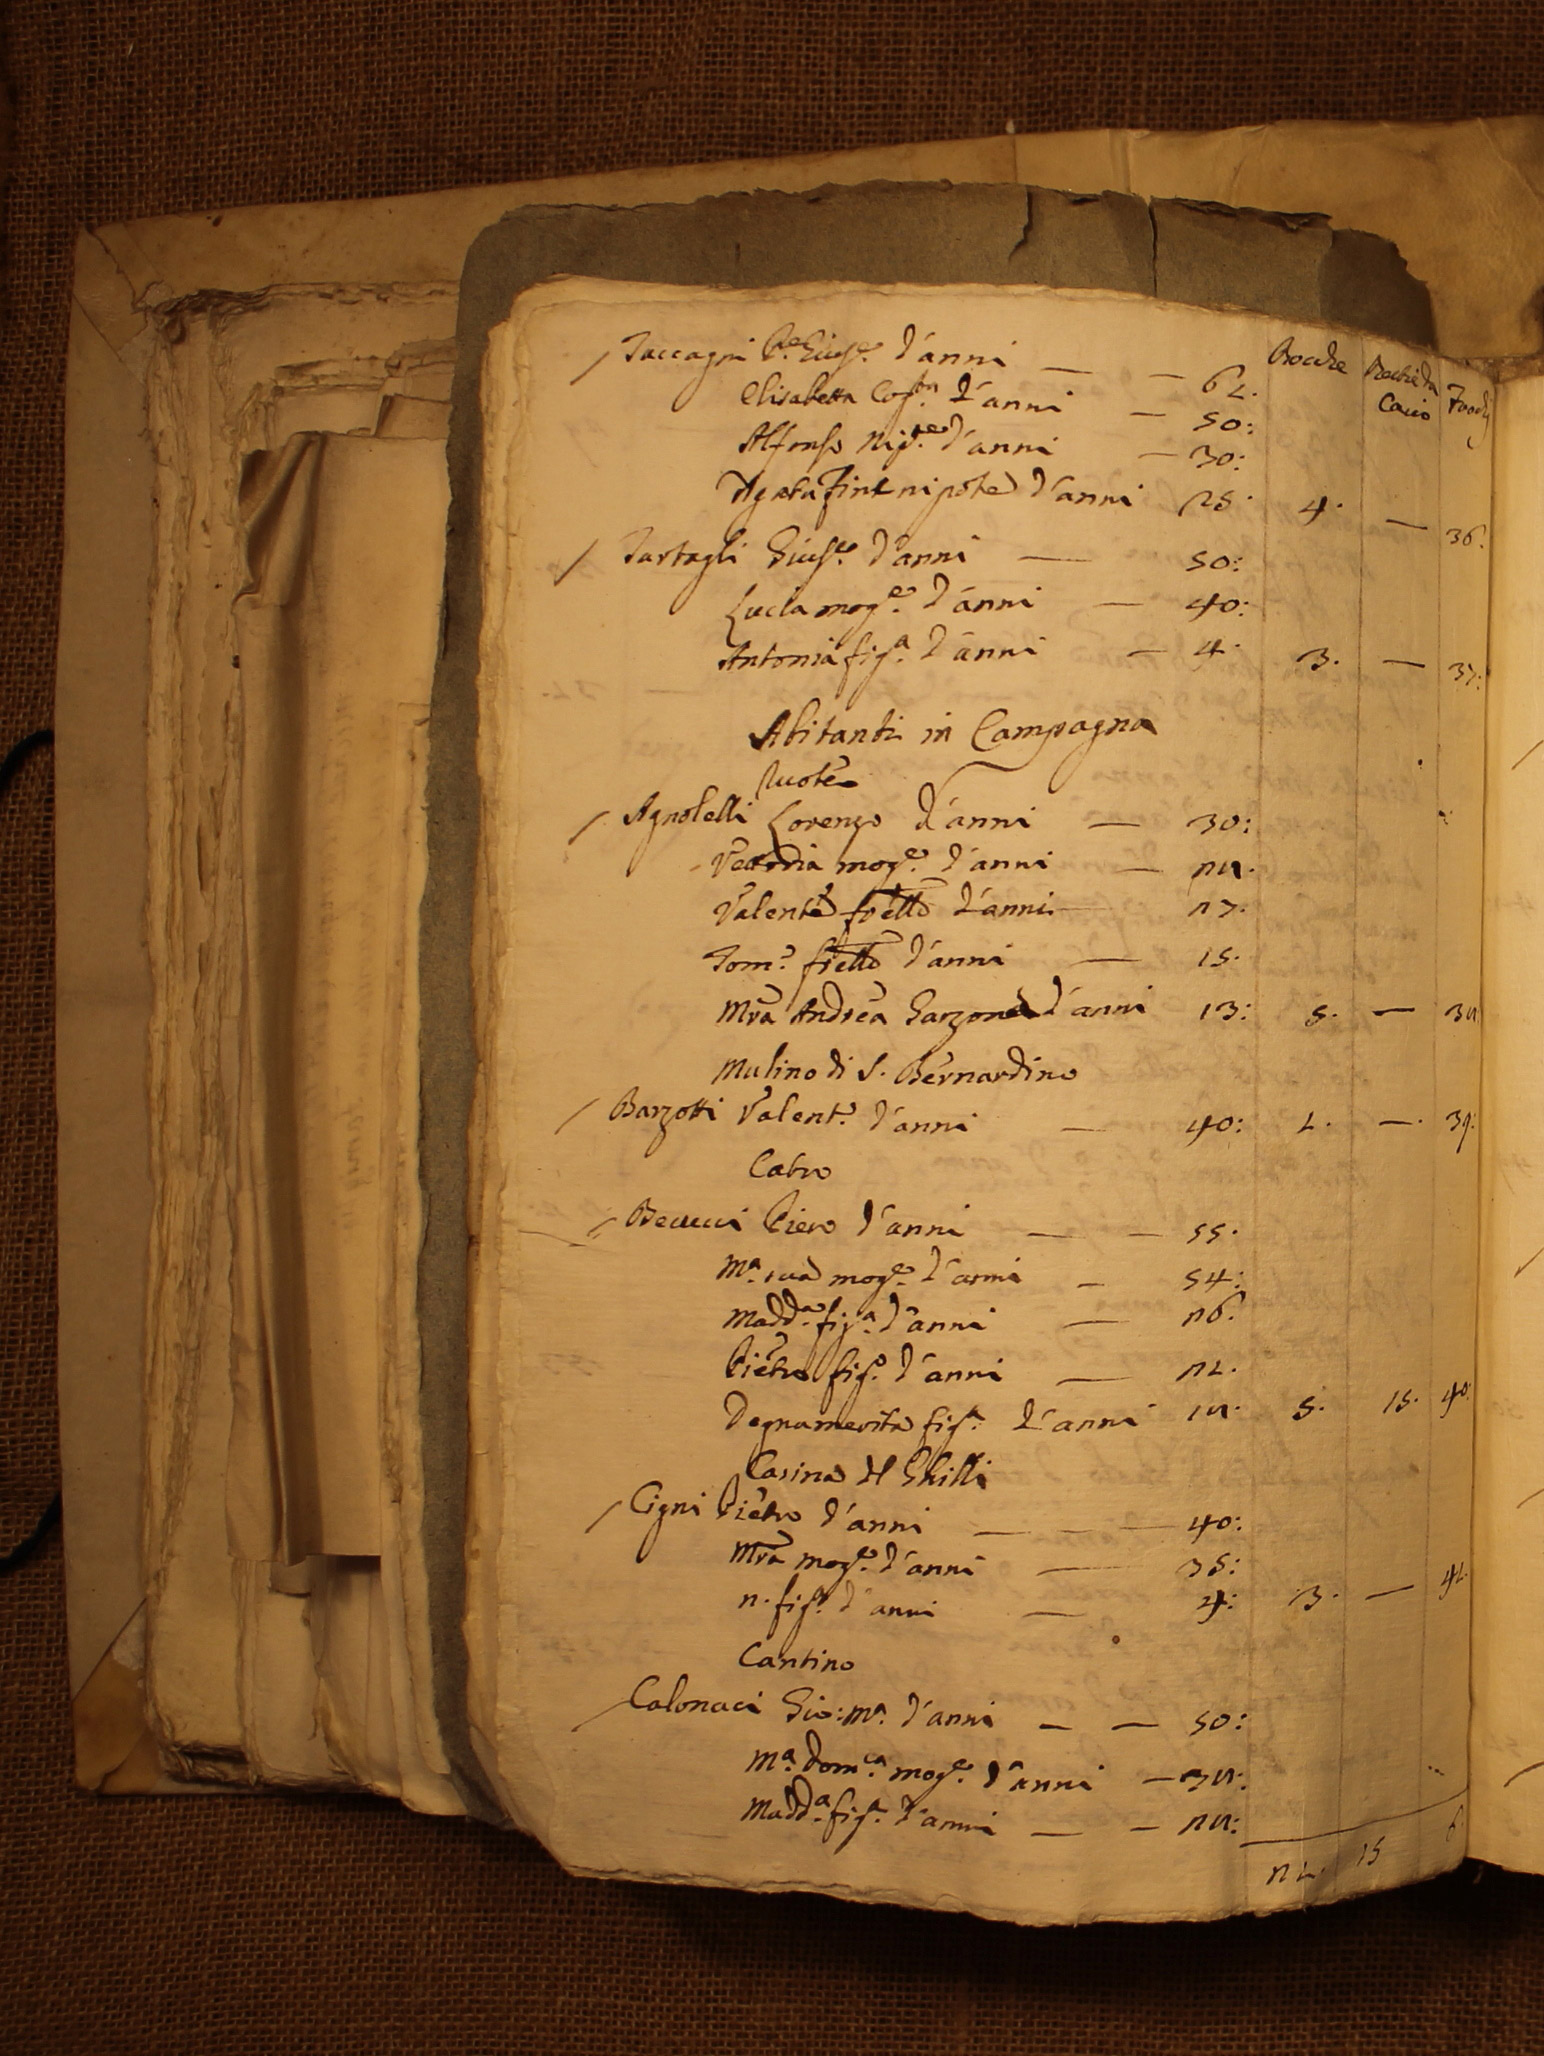 Bocche Bestie da Cacio Fuochi
Taccagni Pe. Giuse. d'anni — — 62.
Elisabetta Cogta. d'anni — 50:
Alfonso nipe. d'anni — 30:
Agata nipote d'anni 25. 4. — 36.
Tartagli Giuse. d'anni — 50:
Lucia moge. d'anni — 40:
Antonia figa. d'anni — 4. 3. — 37:
Abitanti in Campagna
Agnolelli Lorenzo d'anni — 30:
moge. d'anni — 24.
Valente frello d'anni — 27.
Tomo. frello d'anni — 15.
Mra Andrea Garzone d'anni 13: 5. — 38
Mulino di S. Bernardino
Barzotti Valente. d'anni — 40: 1. — 39:
Becucci Piero d'anni — — 55.
Ma. sua moge. d'anni — 54:
Madda. figa. d'anni — 26.
Pietro figo. d'anni — 22.
Degnamerita figa. d'anni 14. 5. 15. 40:
Casina del Ghilli
Cigni Pietro d'anni — — — 40:
Mra moge. d'anni — 35:
n. figo. d'anni — 4: 3. — 41.
Cantino
Calonaci Gio: Ma. d'anni — — 50:
Ma. Domca. moge. d'anni — 34:
Madda. figa. d'anni — — 24:
22. 15 6.